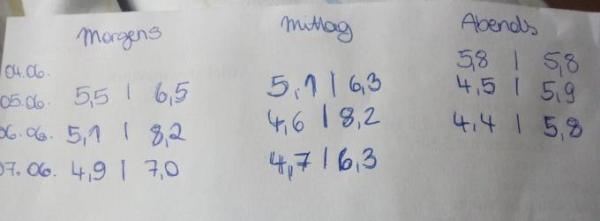 Morgens Mittag Abends
04.06. 5,8 | 5,8
05.06. 5,5 | 6,5 5,1 | 6,3 4,5 | 5,9
06.06. 5,1 | 8,2 4,6 | 8,2 4,4 | 5,8
07.06. 4,9 | 7,0 4,7 | 6,3